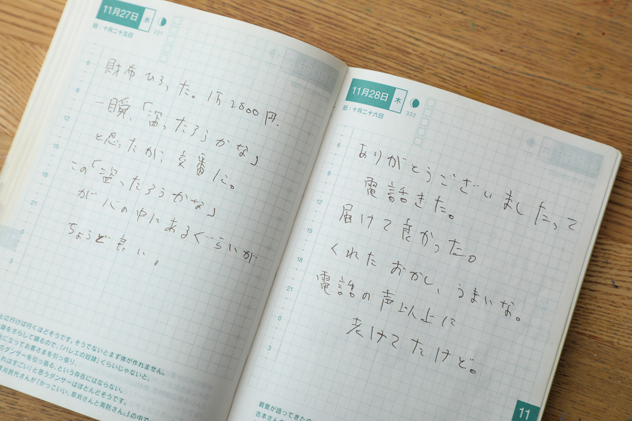 11月27日 水
旧・十月二十五日
331
財布ひろった。1万2800円。
一瞬、「盗ったろうかな」
と思ったが、交番に。
この「盗ったろうかな」
が心の中にあるぐらいが
ちょうど良い。
11月28日 木
旧・十月二十六日
332
ありがとうございましたって
電話きた。
届けて良かった。
くれたおかし、うまいな。
電話の声以上に
老けてたけど。
11